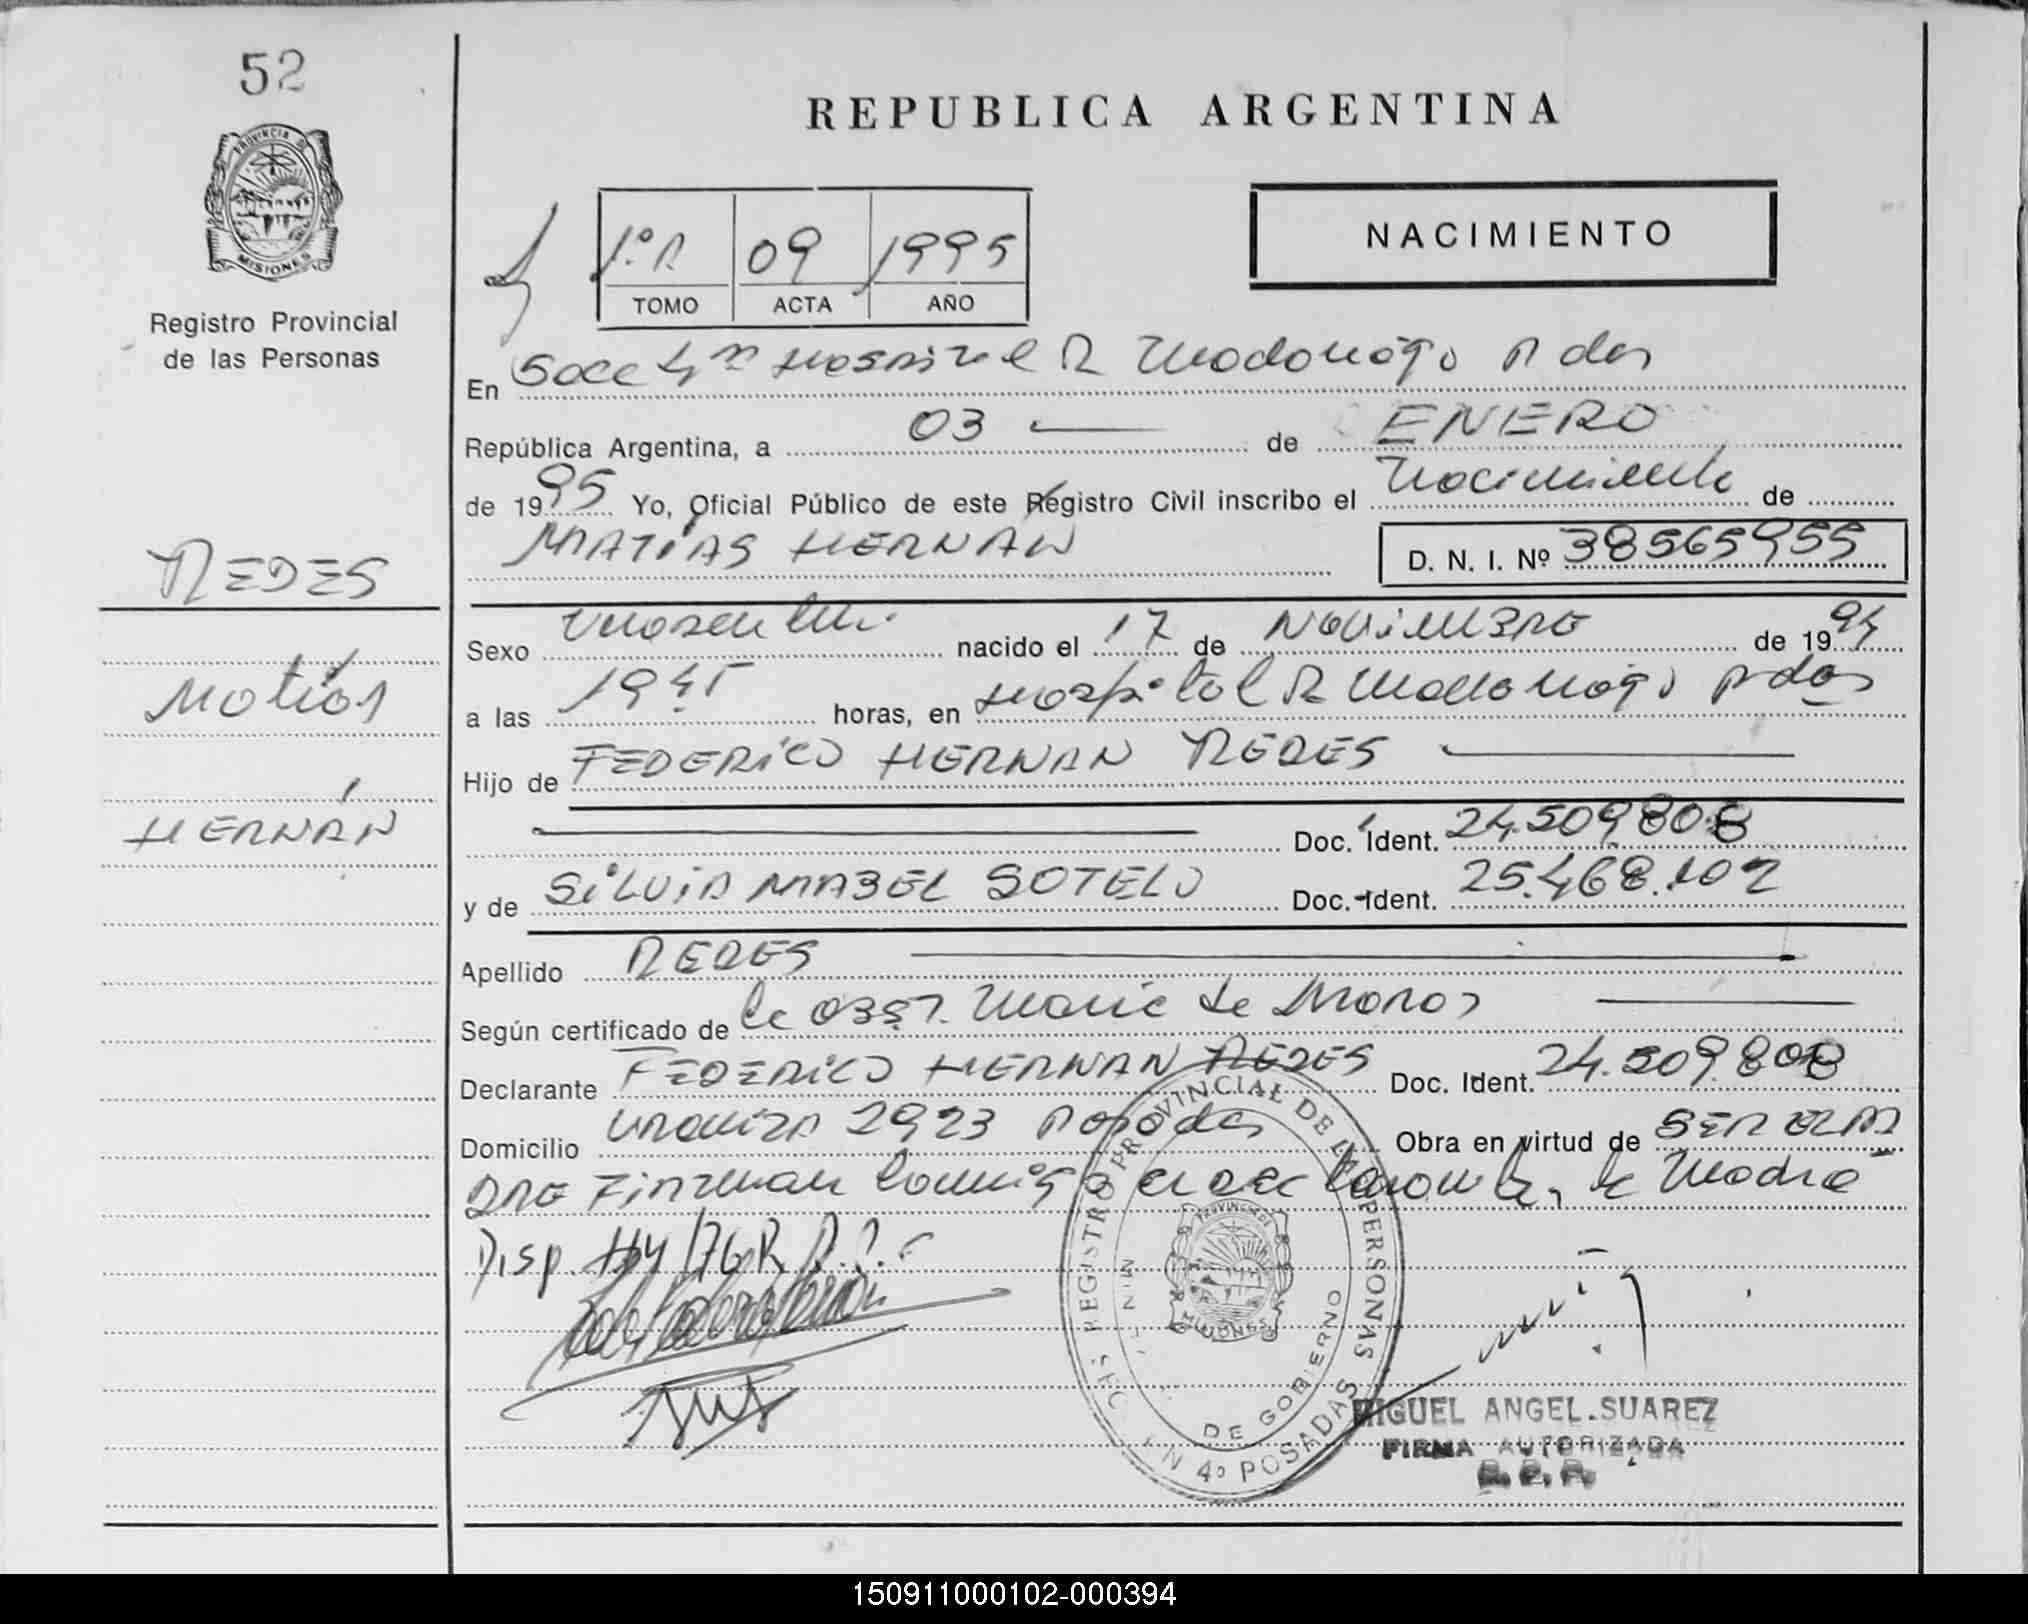 52
PROVINCIA DE
MISIONES
Registro Provincial
de las Personas
REPUBLICA ARGENTINA
NACIMIENTO
09 1995
TOMO ACTA AÑO
En Secc 4ta Hospital R Madariaga Pdas
República Argentina, a 03 de ENERO
de 1995 Yo, Oficial Público de este Registro Civil inscribo el Nacimiento de
MATÍAS HERNAN D. N. I. Nº 38565955
REDES
Matías
HERNÁN
Sexo Masculino nacido el 17 de NOVIEMBRE de 1994
a las 1945 horas, en Hospital R Madariaga Pdas
Hijo de FEDERICO HERNAN REDES
Doc. Ident. 24.509.808
y de SILVIA MABEL SOTELO Doc. Ident. 25.468.102
Apellido REDES
Según certificado de la OBST. Maria de
Declarante FEDERICO HERNAN REDES Doc. Ident. 24.509.808
Domicilio URQUIZA 2923 Posadas Obra en virtud de SER EL PA
DRE Firman conmigo el declarante y la Madre
Disp.
REGISTRO PROVINCIAL DE LAS PERSONAS
DE GOBIERNO
PROVINCIA DE
MISIONES
Nº 4º POSADAS
MIGUEL ANGEL SUAREZ
FIRMA AUTORIZADA
150911000102-000394